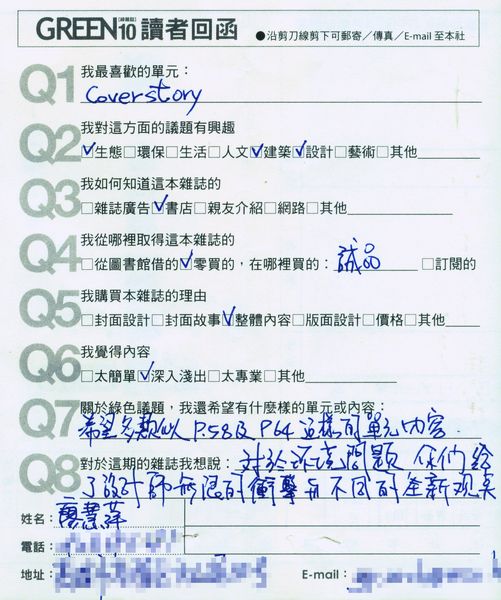 GREEN[綠雜誌]10 讀者回函 ●沿剪刀線剪下可郵寄／傳真／E-mail 至本社
Q1 我最喜歡的單元：
Coverstory
Q2 我對這方面的議題有興趣
☑生態□環保□生活□人文☑建築☑設計□藝術□其他
Q3 我如何知道這本雜誌的
□雜誌廣告☑書店□親友介紹□網路□其他
Q4 我從哪裡取得這本雜誌的
□從圖書館借的☑零買的，在哪裡買的：誠品 □訂閱的
Q5 我購買本雜誌的理由
□封面設計□封面故事☑整體內容□版面設計□價格□其他
Q6 我覺得內容
□太簡單☑深入淺出□太專業□其他
Q7 關於綠色議題，我還希望有什麼樣的單元或內容：
希望多類似 P.58及 P64 這樣的單元內容
Q8 對於這期的雜誌我想說：對於环境問題 你們給
了設計師無限的衝擊与不同的全新观点
姓名：廖慧萍
電話：
地址： E-mail：